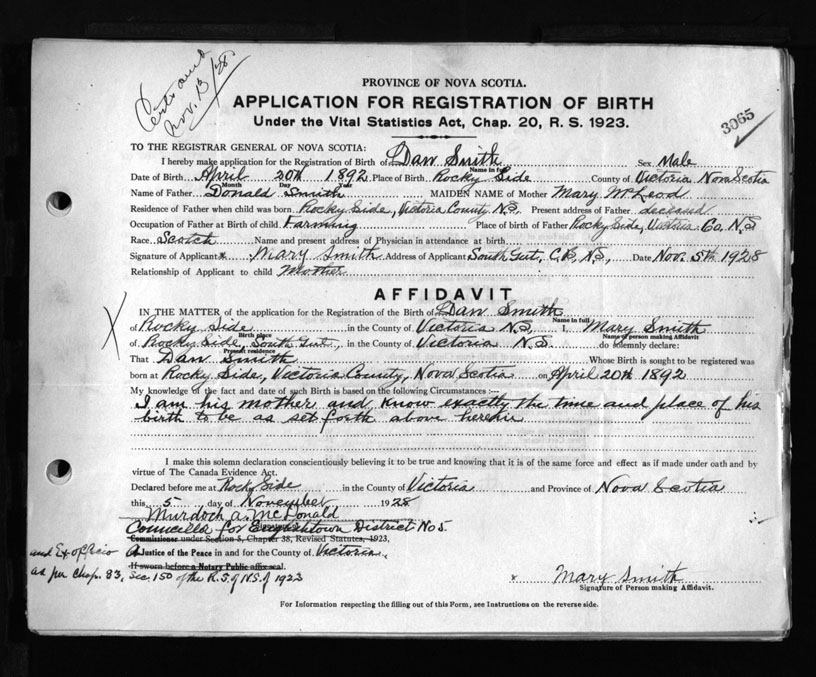 Nov. 13/28
PROVINCE OF NOVA SCOTIA.
APPLICATION FOR REGISTRATION OF BIRTH
Under the Vital Statistics Act, Chap. 20, R. S. 1923.
3065
TO THE REGISTRAR GENERAL OF NOVA SCOTIA:
I hereby make application for the Registration of Birth of Dan Smith Sex Male
Name in full
Date of Birth April 20th 1892 Place of Birth Rocky Side County of Victoria Nova Scotia
Month Day Year
Name of Father Donald Smith MAIDEN NAME of Mother Mary McLeod
Residence of Father when child was born Rocky Side, Victoria County N.S. Present address of Father deceased
Occupation of Father at Birth of child Farming Place of birth of Father Rocky Side, Victoria Co. N.S
Race Scotch Name and present address of Physician in attendance at birth
Signature of Applicant x Mary Smith Address of Applicant South Gut, C.B, N.S, Date Nov. 5th 1928
Relationship of Applicant to child Mother
AFFIDAVIT
IN THE MATTER of the application for the Registration of the Birth of Dan Smith
Name in full
of Rocky Side in the County of Victoria N.S. I, Mary Smith
Birth place Name of person making Affidavit
of Rocky Side, South Gut, in the County of Victoria N.S. do solemnly declare:
Present residence
That Dan Smith Whose Birth is sought to be registered was
born at Rocky Side, Victoria County, Nova Scotia on April 20th 1892
My knowledge of the fact and date of such Birth is based on the following Circumstances :—
I am his mother and know exactly the time and place of his
birth to be as set forth above herein
I make this solemn declaration conscientiously believing it to be true and knowing that it is of the same force and effect as if made under oath and by
virtue of The Canada Evidence Act.
Declared before me at Rocky Side in the County of Victoria and Province of Nova Scotia
this 5 day of November 1928
Murdoch A. McDonald
Councillor for Englishtown District No 5
Commissioner under Section 5, Chapter 38, Revised Statutes, 1923,
and Ex officio A Justice of the Peace in and for the County of Victoria.
If sworn before a Notary Public affix seal.
as per Chap. 83, Sec. 150 of the R.S. of N.S. of 1923
x Mary Smith
Signature of Person making Affidavit.
For Information respecting the filling out of this Form, see Instructions on the reverse side.